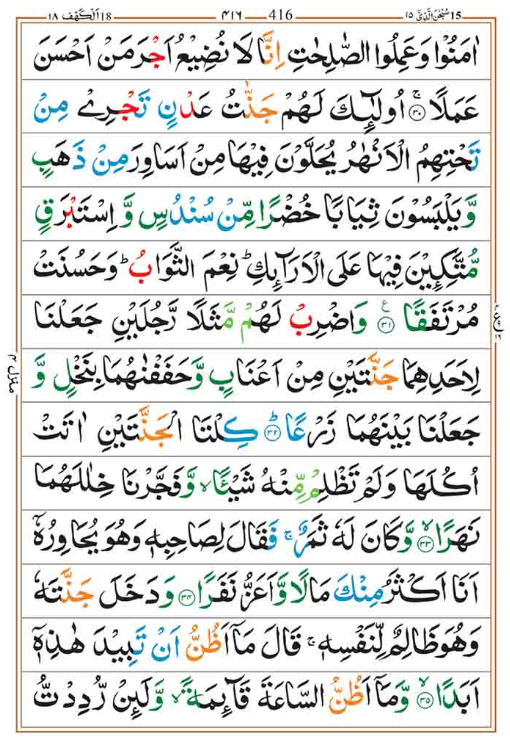 سُبْحٰنَ الَّذِیْۤ ١٥ 15 416 ٤١٦ اَلْكَهْف ١٨ 18
اٰمَنُوْا وَعَمِلُوا الصّٰلِحٰتِ اِنَّا لَا نُضِیْعُ اَجْرَ مَنْ اَحْسَنَ
عَمَلًا ۚ ﴿٣٠﴾ اُولٰٓئِكَ لَهُمْ جَنّٰتُ عَدْنٍ تَجْرِیْ مِنْ
تَحْتِهِمُ الْاَنْهٰرُ یُحَلَّوْنَ فِیْهَا مِنْ اَسَاوِرَ مِنْ ذَهَبٍ
وَّ یَلْبَسُوْنَ ثِیَابًا خُضْرًا مِّنْ سُنْدُسٍ وَّ اِسْتَبْرَقٍ
مُّتَّكِـِٕیْنَ فِیْهَا عَلَی الْاَرَآىِٕكِ ؕ نِعْمَ الثَّوَابُ ؕ وَحَسُنَتْ
مُرْتَفَقًا ﴿٣١﴾ ع وَاضْرِبْ لَهُمْ مَّثَلًا رَّجُلَیْنِ جَعَلْنَا
لِاَحَدِهِمَا جَنَّتَیْنِ مِنْ اَعْنَابٍ وَّحَفَفْنٰهُمَا بِنَخْلٍ وَّ
جَعَلْنَا بَیْنَهُمَا زَرْعًا ؕ ﴿٣٢﴾ كِلْتَا الْجَنَّتَیْنِ اٰتَتْ
اُكُلَهَا وَلَمْ تَظْلِمْ مِّنْهُ شَیْـًٔا ۙ وَّفَجَّرْنَا خِلٰلَهُمَا
نَهَرًا ۙ ﴿٣٣﴾ وَّكَانَ لَهٗ ثَمَرٌ ۚ فَقَالَ لِصَاحِبِهٖ وَهُوَ یُحَاوِرُهٗۤ
اَنَا اَكْثَرُ مِنْكَ مَالًا وَّاَعَزُّ نَفَرًا ﴿٣٤﴾ وَدَخَلَ جَنَّتَهٗ
وَهُوَ ظَالِمٌ لِّنَفْسِهٖ ۚ قَالَ مَاۤ اَظُنُّ اَنْ تَبِیْدَ هٰذِهٖۤ
اَبَدًا ۙ ﴿٣٥﴾ وَّمَاۤ اَظُنُّ السَّاعَةَ قَآىِٕمَةً ۙ وَّلَىِٕنْ رُّدِدْتُّ
منزل ٤